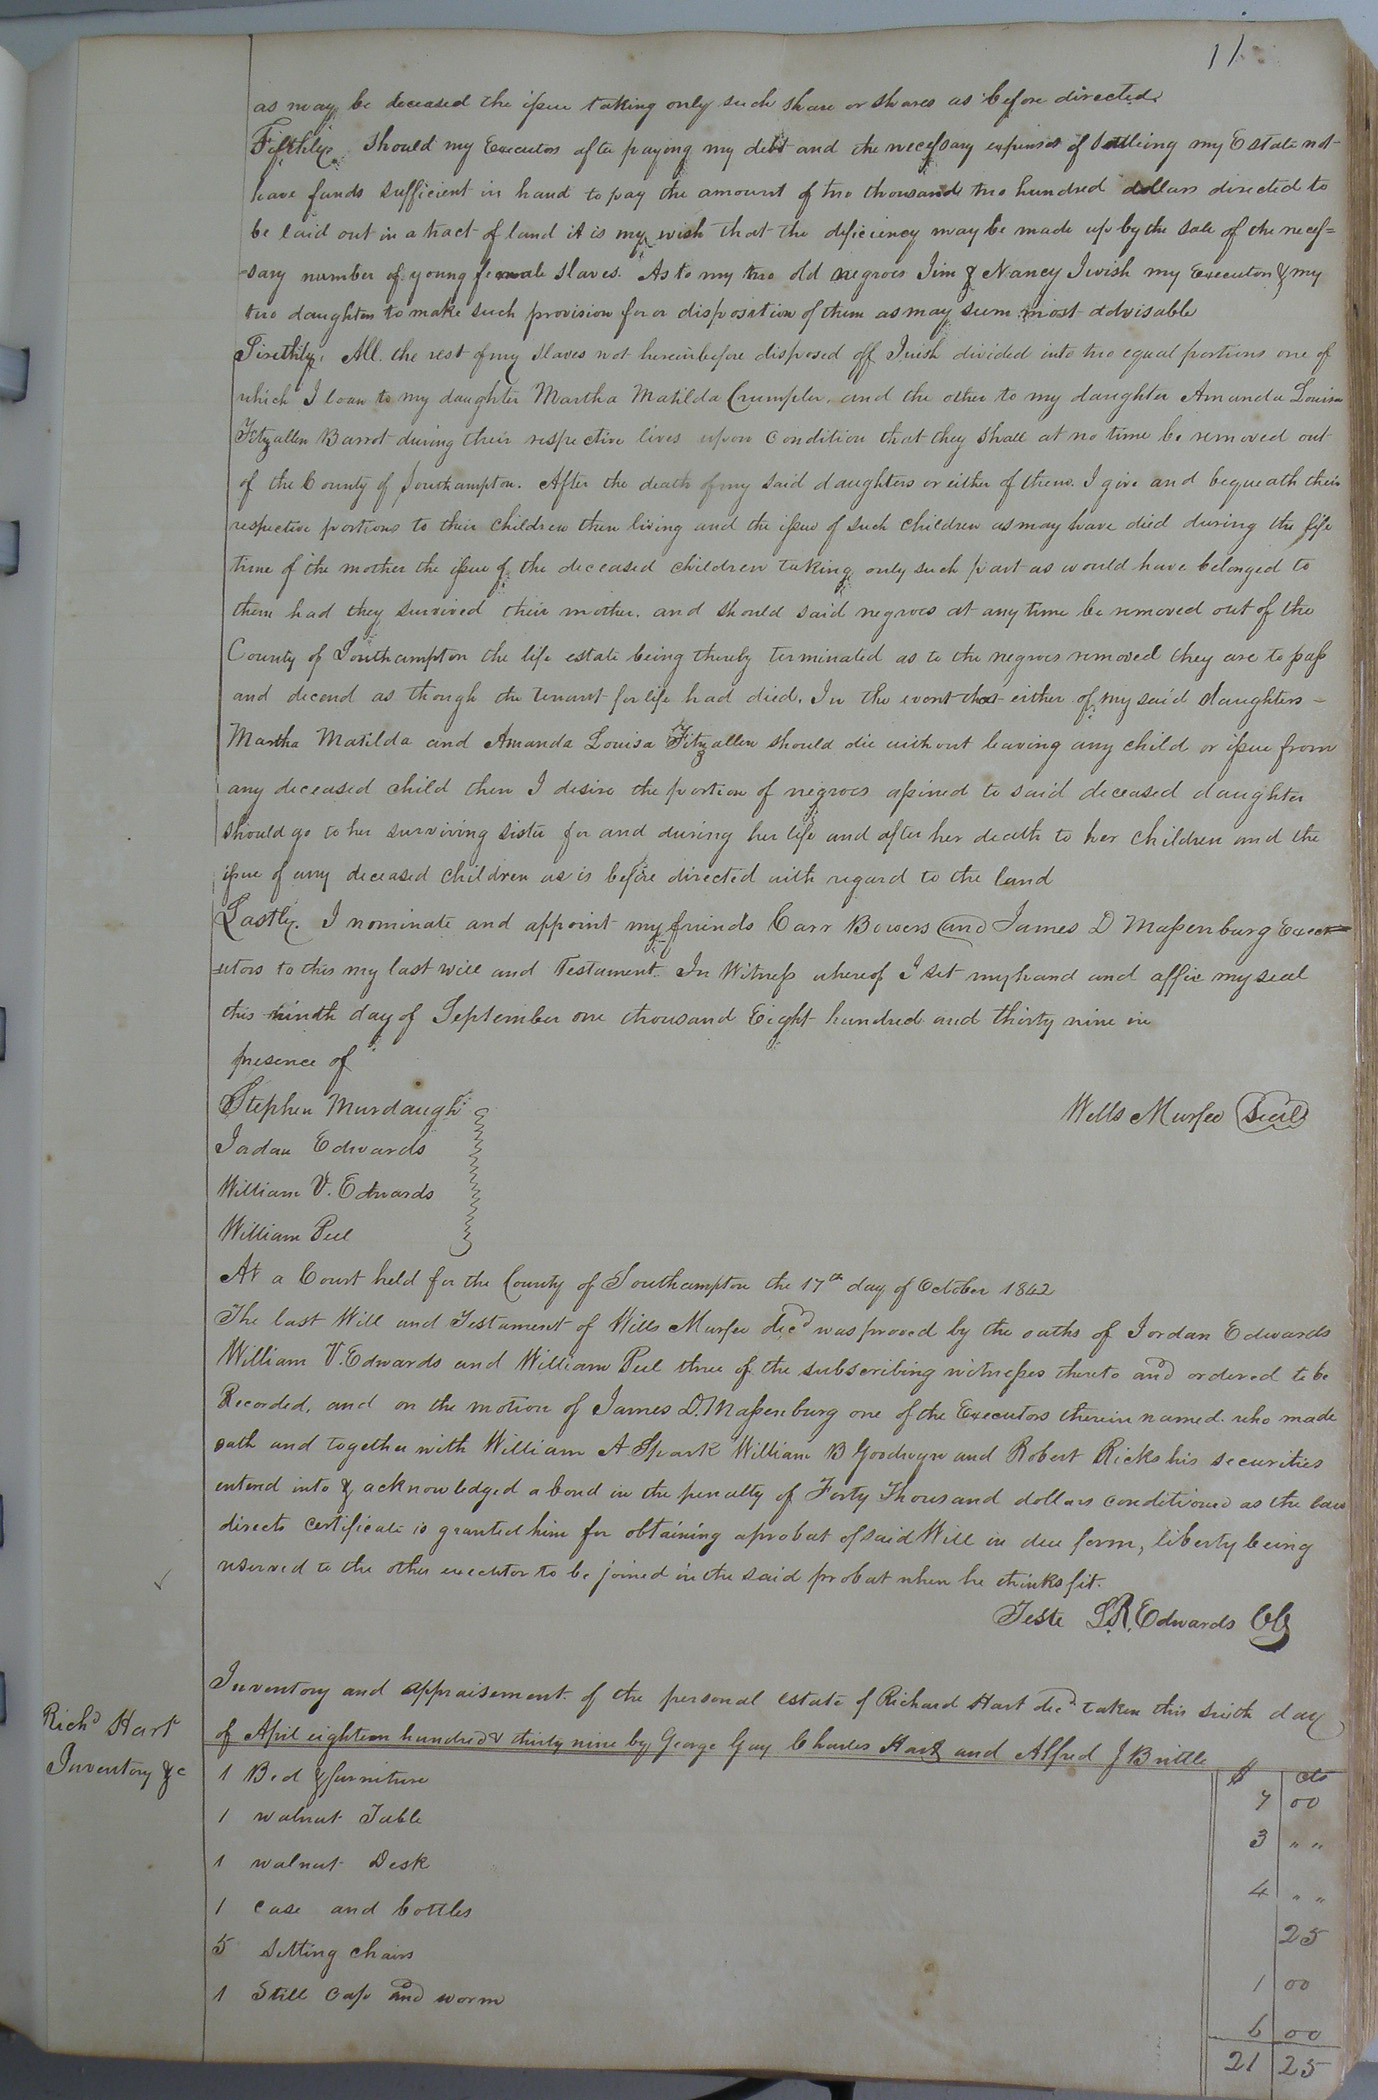 11
as may be deceased the issue taking only such share or shares as before directed.
Fifthly. Should my Executors after paying my debt and the necessary expenses of settleing my Estate not
have funds sufficient in hand to pay the amount of two thousand two hundred dollars directed to
be laid out in a tract of land it is my wish that the deficiency may be made up by the sale of the neces=
=sary number of young female slaves. As to my two old negroes Jim & Nancy I wish my Executors & my
two daughters to make such provision for or disposition of them as may seem most advisable
Sixthly, All the rest of my slaves not hereinbefore disposed off I wish divided into two equal portions one of
which I loan to my daughter Martha Matilda Crumpler, and the other to my daughter Amanda Louisa
Fitzallen Barrot during their respective lives upon condition that they shall at no time be removed out
of the County of Southampton. After the death of my said daughters or either of them. I give and bequeath their
respective portions to their children then living and the issue of such children as may have died during the life
time of the mother the issue of the deceased children taking only such part as would have belonged to
them had they survived their mother. and should said negroes at any time be removed out of the
County of Southampton the life estate being thereby terminated as to the negroes removed they are to pass
and decend as though the tenant for life had died. In the event that either of my said daughters =
Martha Matilda and Amanda Louisa Fitzallen should die without leaving any child or issue from
any deceased child then I desire the portion of negroes assined to said deceased daughter
should go to her surviving sister for and during her life and after her death to her children and the
issue of any deceased children as is before directed with regard to the land
Lastly. I nominate and appoint my friends Carr Bowers and James D Massenburg Exec=
=utors to this my last will and Testament. In Witness whereof I set my hand and affix my seal
this ninth day of September one thousand Eight hundred and thirty nine in
presence of
Stephen Murdaugh
Wells Murfee Seal
Jordan Edwards
William V. Edwards
William Peel
At a Court held for the County of Southampton the 17th day of October 1842
The last Will and Testament of Wills Murfee decd was proved by the oaths of Jordan Edwards
William V. Edwards and William Peel three of the subscribing witnesses thereto and ordered to be
Recorded, and on the motion of James D. Massenburg one of the Executors therein named who made
oath and together with William A Spark William B Goodwyn and Robert Ricks his securities
entered into & acknowledged a bond in the penalty of Forty Thousand dollars conditioned as the law
directs certificate is granted him for obtaining a probat of said Will in due form, liberty being
reserved to the other executor to be joined in the said probat when he thinks fit.
Teste L.R. Edwards CC
Richd Hart
Inventory &c
Inventory and appraisement of the personal estate of Richard Hart decd taken this sixth day
of April eighteen hundred & thirty nine by George Gay Charles Hart and Alfred J Brittle
$ cts
1 Bed & furniture 7 00
1 walnut Table 3 " "
1 walnut Desk 4 " "
1 case and bottles 25
5 Setting chairs 1 00
1 Still cap and worm 6 00
21 25